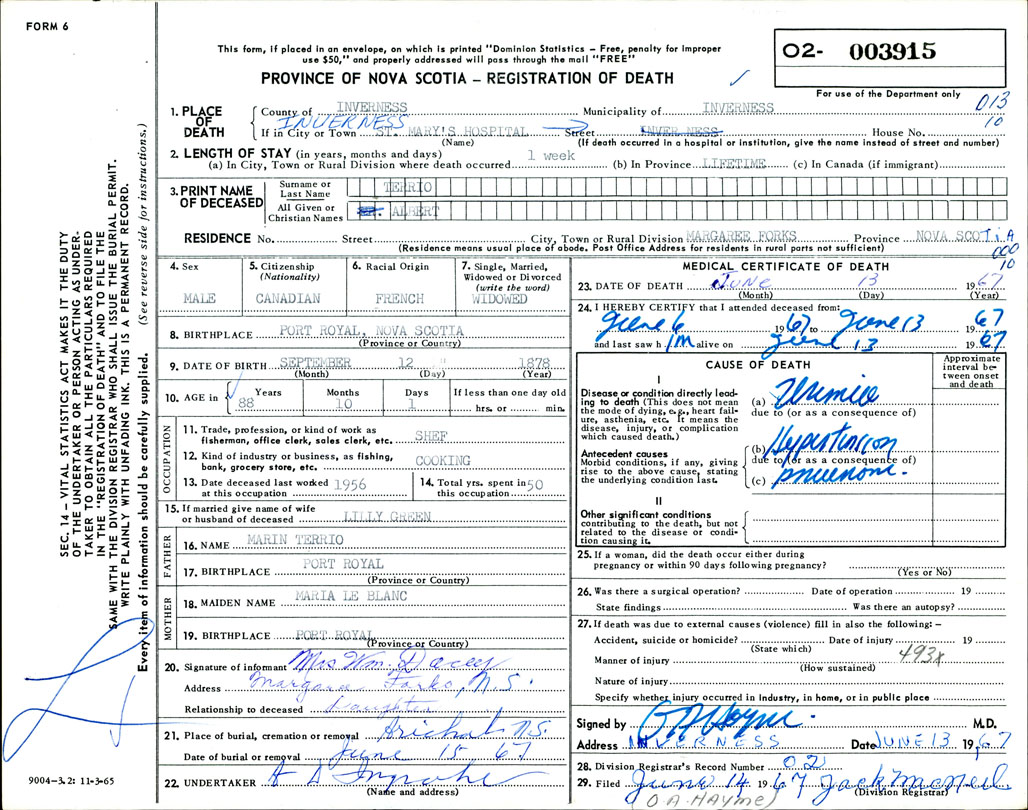 FORM 6
This form, if placed in an envelope, on which is printed "Dominion Statistics – Free, penalty for improper
use $50," and properly addressed will pass through the mail "FREE"
PROVINCE OF NOVA SCOTIA – REGISTRATION OF DEATH
02- 003915
For use of the Department only
013
10
SEC. 14 – VITAL STATISTICS ACT MAKES IT THE DUTY
OF THE UNDERTAKER OR PERSON ACTING AS UNDER-
TAKER TO OBTAIN ALL THE PARTICULARS REQUIRED
IN THE "REGISTRATION OF DEATH" AND TO FILE THE
SAME WITH THE DIVISION REGISTRAR WHO SHALL ISSUE THE BURIAL PERMIT.
WRITE PLAINLY WITH UNFADING INK. THIS IS A PERMANENT RECORD.
Every item of information should be carefully supplied. (See reverse side for instructions.)
1. PLACE OF DEATH
County of INVERNESS Municipality of INVERNESS
INVERNESS
If in City or Town ST. MARY'S HOSPITAL Street INVERNESS House No.
(Name) (If death occurred in a hospital or institution, give the name instead of street and number)
2. LENGTH OF STAY (in years, months and days)
(a) In City, Town or Rural Division where death occurred 1 week (b) In Province LIFETIME (c) In Canada (if immigrant)
3. PRINT NAME OF DECEASED
Surname or Last Name TERRIO
All Given or Christian Names ALBERT
RESIDENCE No. Street City, Town or Rural Division MARGAREE FORKS Province NOVA SCOTIA
(Residence means usual place of abode. Post Office Address for residents in rural parts not sufficient)
000
10
4. Sex MALE
5. Citizenship (Nationality) CANADIAN
6. Racial Origin FRENCH
7. Single, Married, Widowed or Divorced (write the word) WIDOWED
8. BIRTHPLACE PORT ROYAL, NOVA SCOTIA
(Province or Country)
9. DATE OF BIRTH SEPTEMBER 12 " 1878
(Month) (Day) (Year)
10. AGE in Years 88 Months 10 Days 1 If less than one day old hrs. or min.
OCCUPATION
11. Trade, profession, or kind of work as
fisherman, office clerk, sales clerk, etc. SHEF
12. Kind of industry or business, as fishing,
bank, grocery store, etc. COOKING
13. Date deceased last worked at this occupation 1956
14. Total yrs. spent in this occupation 50
15. If married give name of wife
or husband of deceased LILLY GREEN
FATHER
16. NAME MARIN TERRIO
17. BIRTHPLACE PORT ROYAL
(Province or Country)
MOTHER
18. MAIDEN NAME MARIA LE BLANC
19. BIRTHPLACE PORT ROYAL
(Province or Country)
20. Signature of informant Mrs Wm. Dacey
Address Margaree Forks, N.S.
Relationship to deceased Daughter
21. Place of burial, cremation or removal Arichat N.S.
Date of burial or removal June 15 67
22. UNDERTAKER
(Name and address)
9004-3.2: 11-3-65
MEDICAL CERTIFICATE OF DEATH
23. DATE OF DEATH JUNE 13 1967
(Month) (Day) (Year)
24. I HEREBY CERTIFY that I attended deceased from:
June 6 1967 to June 13 1967
and last saw him alive on June 13 1967
CAUSE OF DEATH
Approximate interval between onset and death
I
Disease or condition directly leading to death (This does not mean
the mode of dying, e.g., heart failure, asthenia, etc. It means the
disease, injury, or complication
which caused death.)
(a) Uremia
due to (or as a consequence of)
Antecedent causes
Morbid conditions, if any, giving
rise to the above cause, stating
the underlying condition last.
(b) Hypertension
due to (or as a consequence of)
(c)
II
Other significant conditions
contributing to the death, but not
related to the disease or condition causing it.
25. If a woman, did the death occur either during
pregnancy or within 90 days following pregnancy?
(Yes or No)
26. Was there a surgical operation? Date of operation 19
State findings Was there an autopsy?
27. If death was due to external causes (violence) fill in also the following: –
Accident, suicide or homicide? Date of injury 19
(State which)
Manner of injury 493x
(How sustained)
Nature of injury
Specify whether injury occurred in industry, in home, or in public place
Signed by M.D.
Address INVERNESS Date JUNE 13 1967
28. Division Registrar's Record Number 02
29. Filed June 14 1967 Jack MacNeil
(Division Registrar)